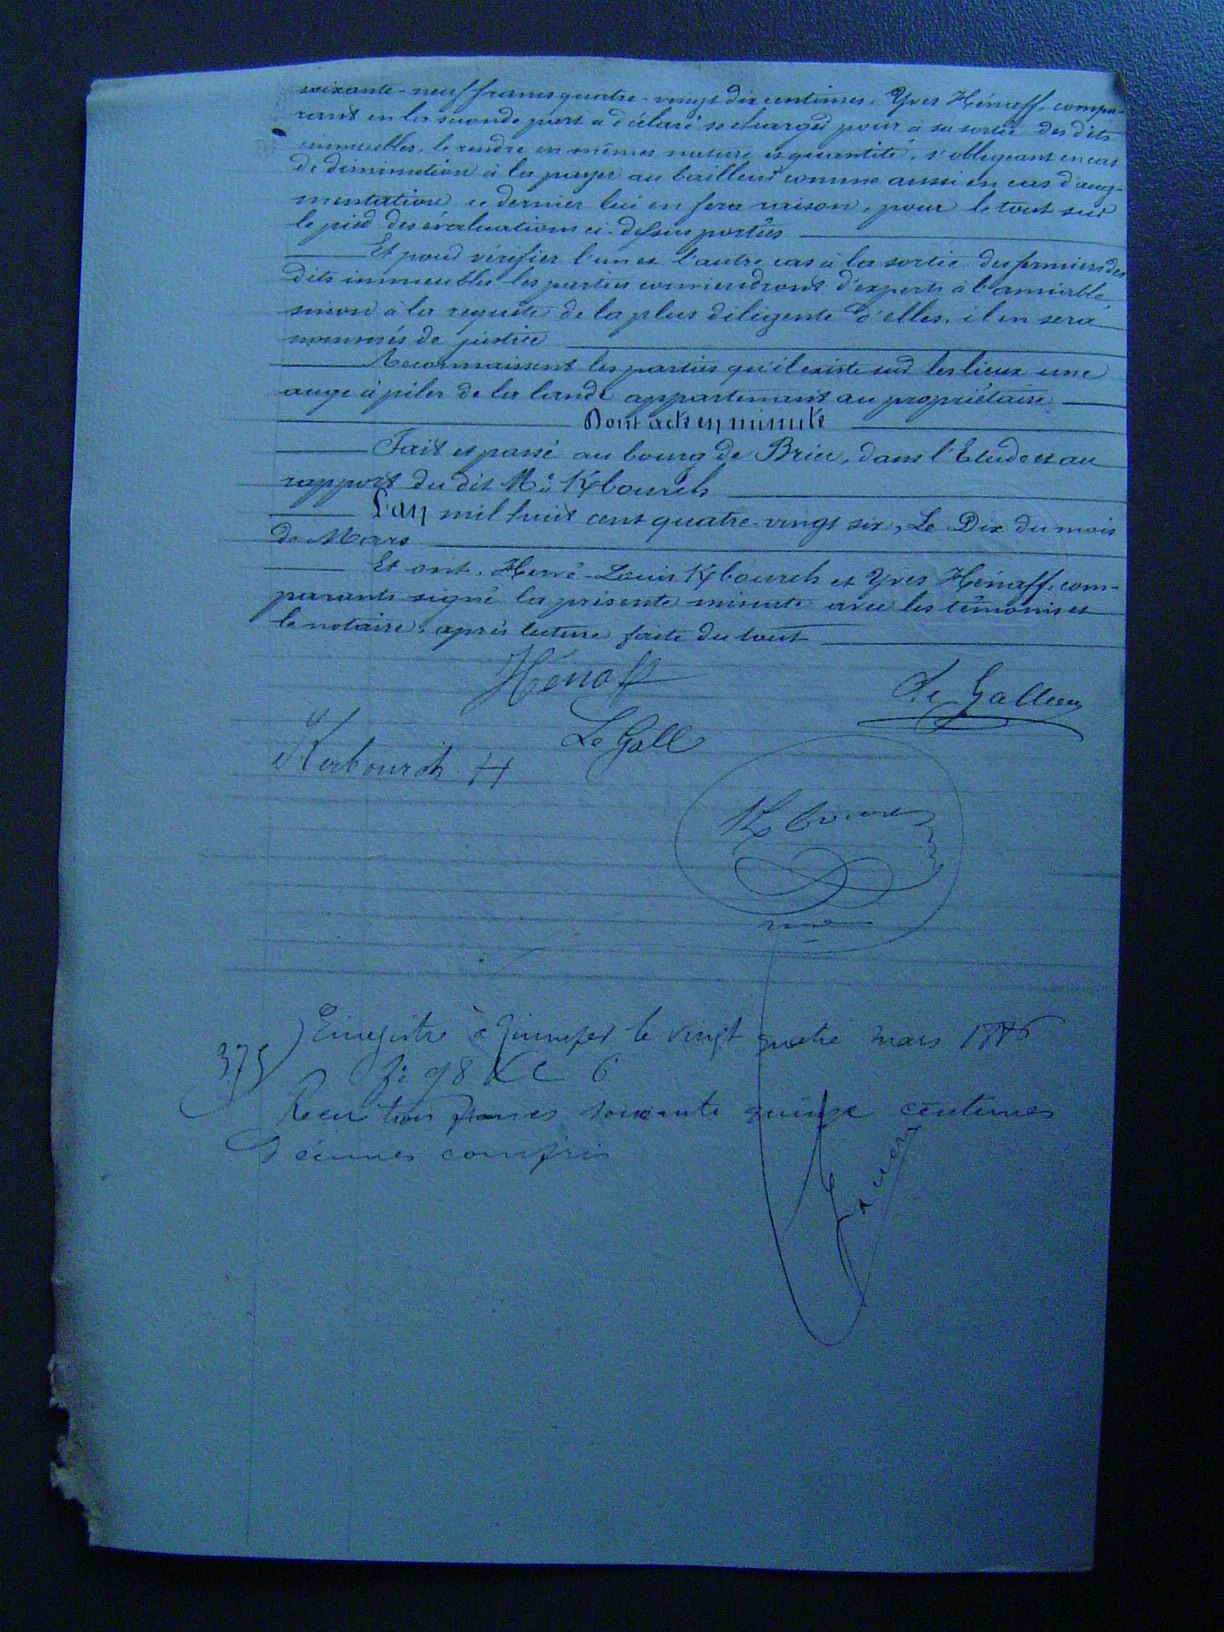 soixante-neuf francs quatre-vingt dix centimes. Yves Hénaff, compa-
rant en la seconde part a déclaré se charger pour à sa sortie des dits
immeubles, le rendre en mêmes nature et quantité, s'obligeant en cas
de diminution à la payer au bailleur comme aussi en cas d'aug-
mentation ce dernier lui en fera raison, pour le tout sur
le pied des évaluations ci-dessus portées
Et pour vérifier l'un et l'autre cas à la sortie des fermiers des
dits immeubles les parties conviendront d'experts à l'amiable,
sinon à la requête de la plus diligente d'elles, il en sera
nommés de justice
Reconnaissent les parties qu'il existe sur les lieux une
auge à piler de la lande appartenant au propriétaire
Dont acte en minute
Fait et passé au bourg de Briec, dans l'Etude et au
rapport du dit Me Kbourch
L'an mil huit cent quatre-vingt six, Le Dix du mois
de Mars
Et ont, Hervé-Louis Kbourch et Yves Hénaff, com-
parants signé la présente minute avec les témoins et
le notaire, après lecture faite du tout
Hénaff
Le Gallou
Le Gall
Kerbourch H
Kbourch
Enregistré à Quimper le vingt quatre mars 1886
375 fo 98 Ro C 6
Reçu trois francs soixante quinze centimes
Décimes compris